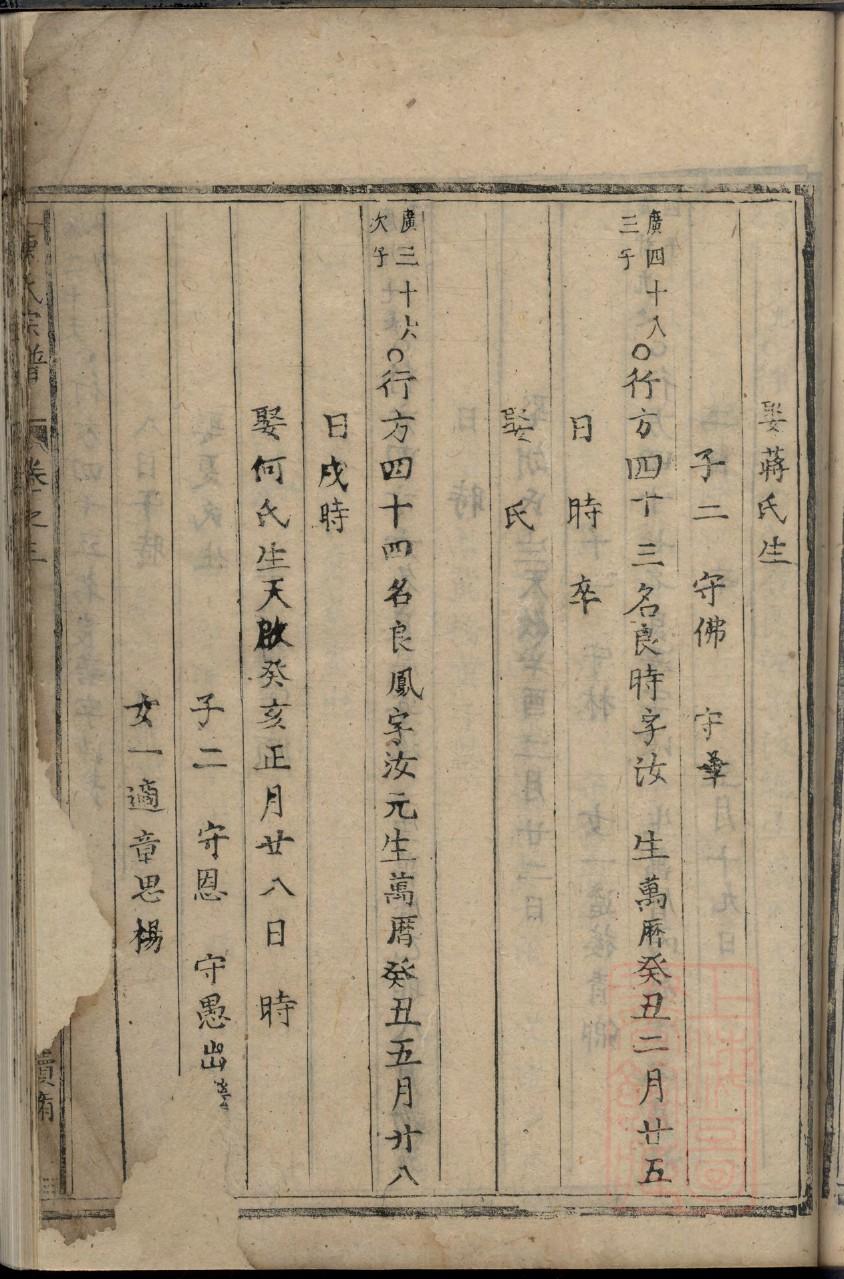 娶蔣氏生
子二 守佛 守
廣四十八
三子
○行方四十三名良時字汝 生萬曆癸丑二月廿五
日 時 卒
娶 氏
廣三十六
次子
○行方四十四名良鳳字汝元生萬曆癸丑五月廿八
日戌時
娶何氏生天啟癸亥正月廿八日 時
子二 守恩 守愚出
女一適章思楊
氏宗譜 卷之三
續脩